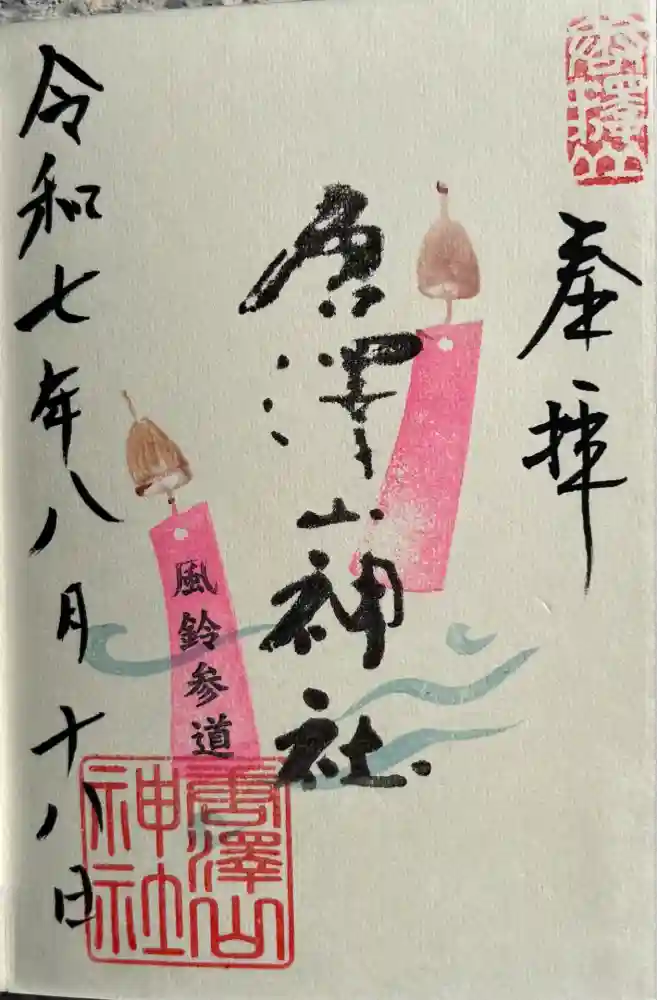 唐澤山
奉拝
唐澤山神社
風鈴参道
唐澤山
神社
令和七年八月十八日